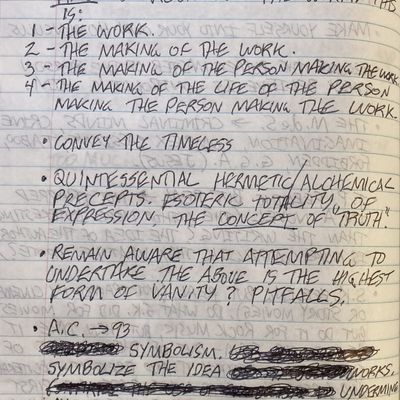 IS:
1 - THE WORK.
2 - THE MAKING OF THE WORK.
3 - THE MAKING OF THE PERSON MAKING THE WORK
4 - THE MAKING OF THE LIFE OF THE PERSON
MAKING THE PERSON MAKING THE WORK.
• CONVEY THE TIMELESS
• QUINTESSENTIAL HERMETIC/ALCHEMICAL
PRECEPTS. ESOTERIC TOTALITY, OF
EXPRESSION THE CONCEPT OF "TRUTH."
• REMAIN AWARE THAT ATTEMPTING TO
UNDERTAKE THE ABOVE IS THE HIGHEST
FORM OF VANITY? PITFALLS.
• A.C. → 93
SYMBOLISM.
SYMBOLIZE THE IDEA WORKS.
UNDERMINE